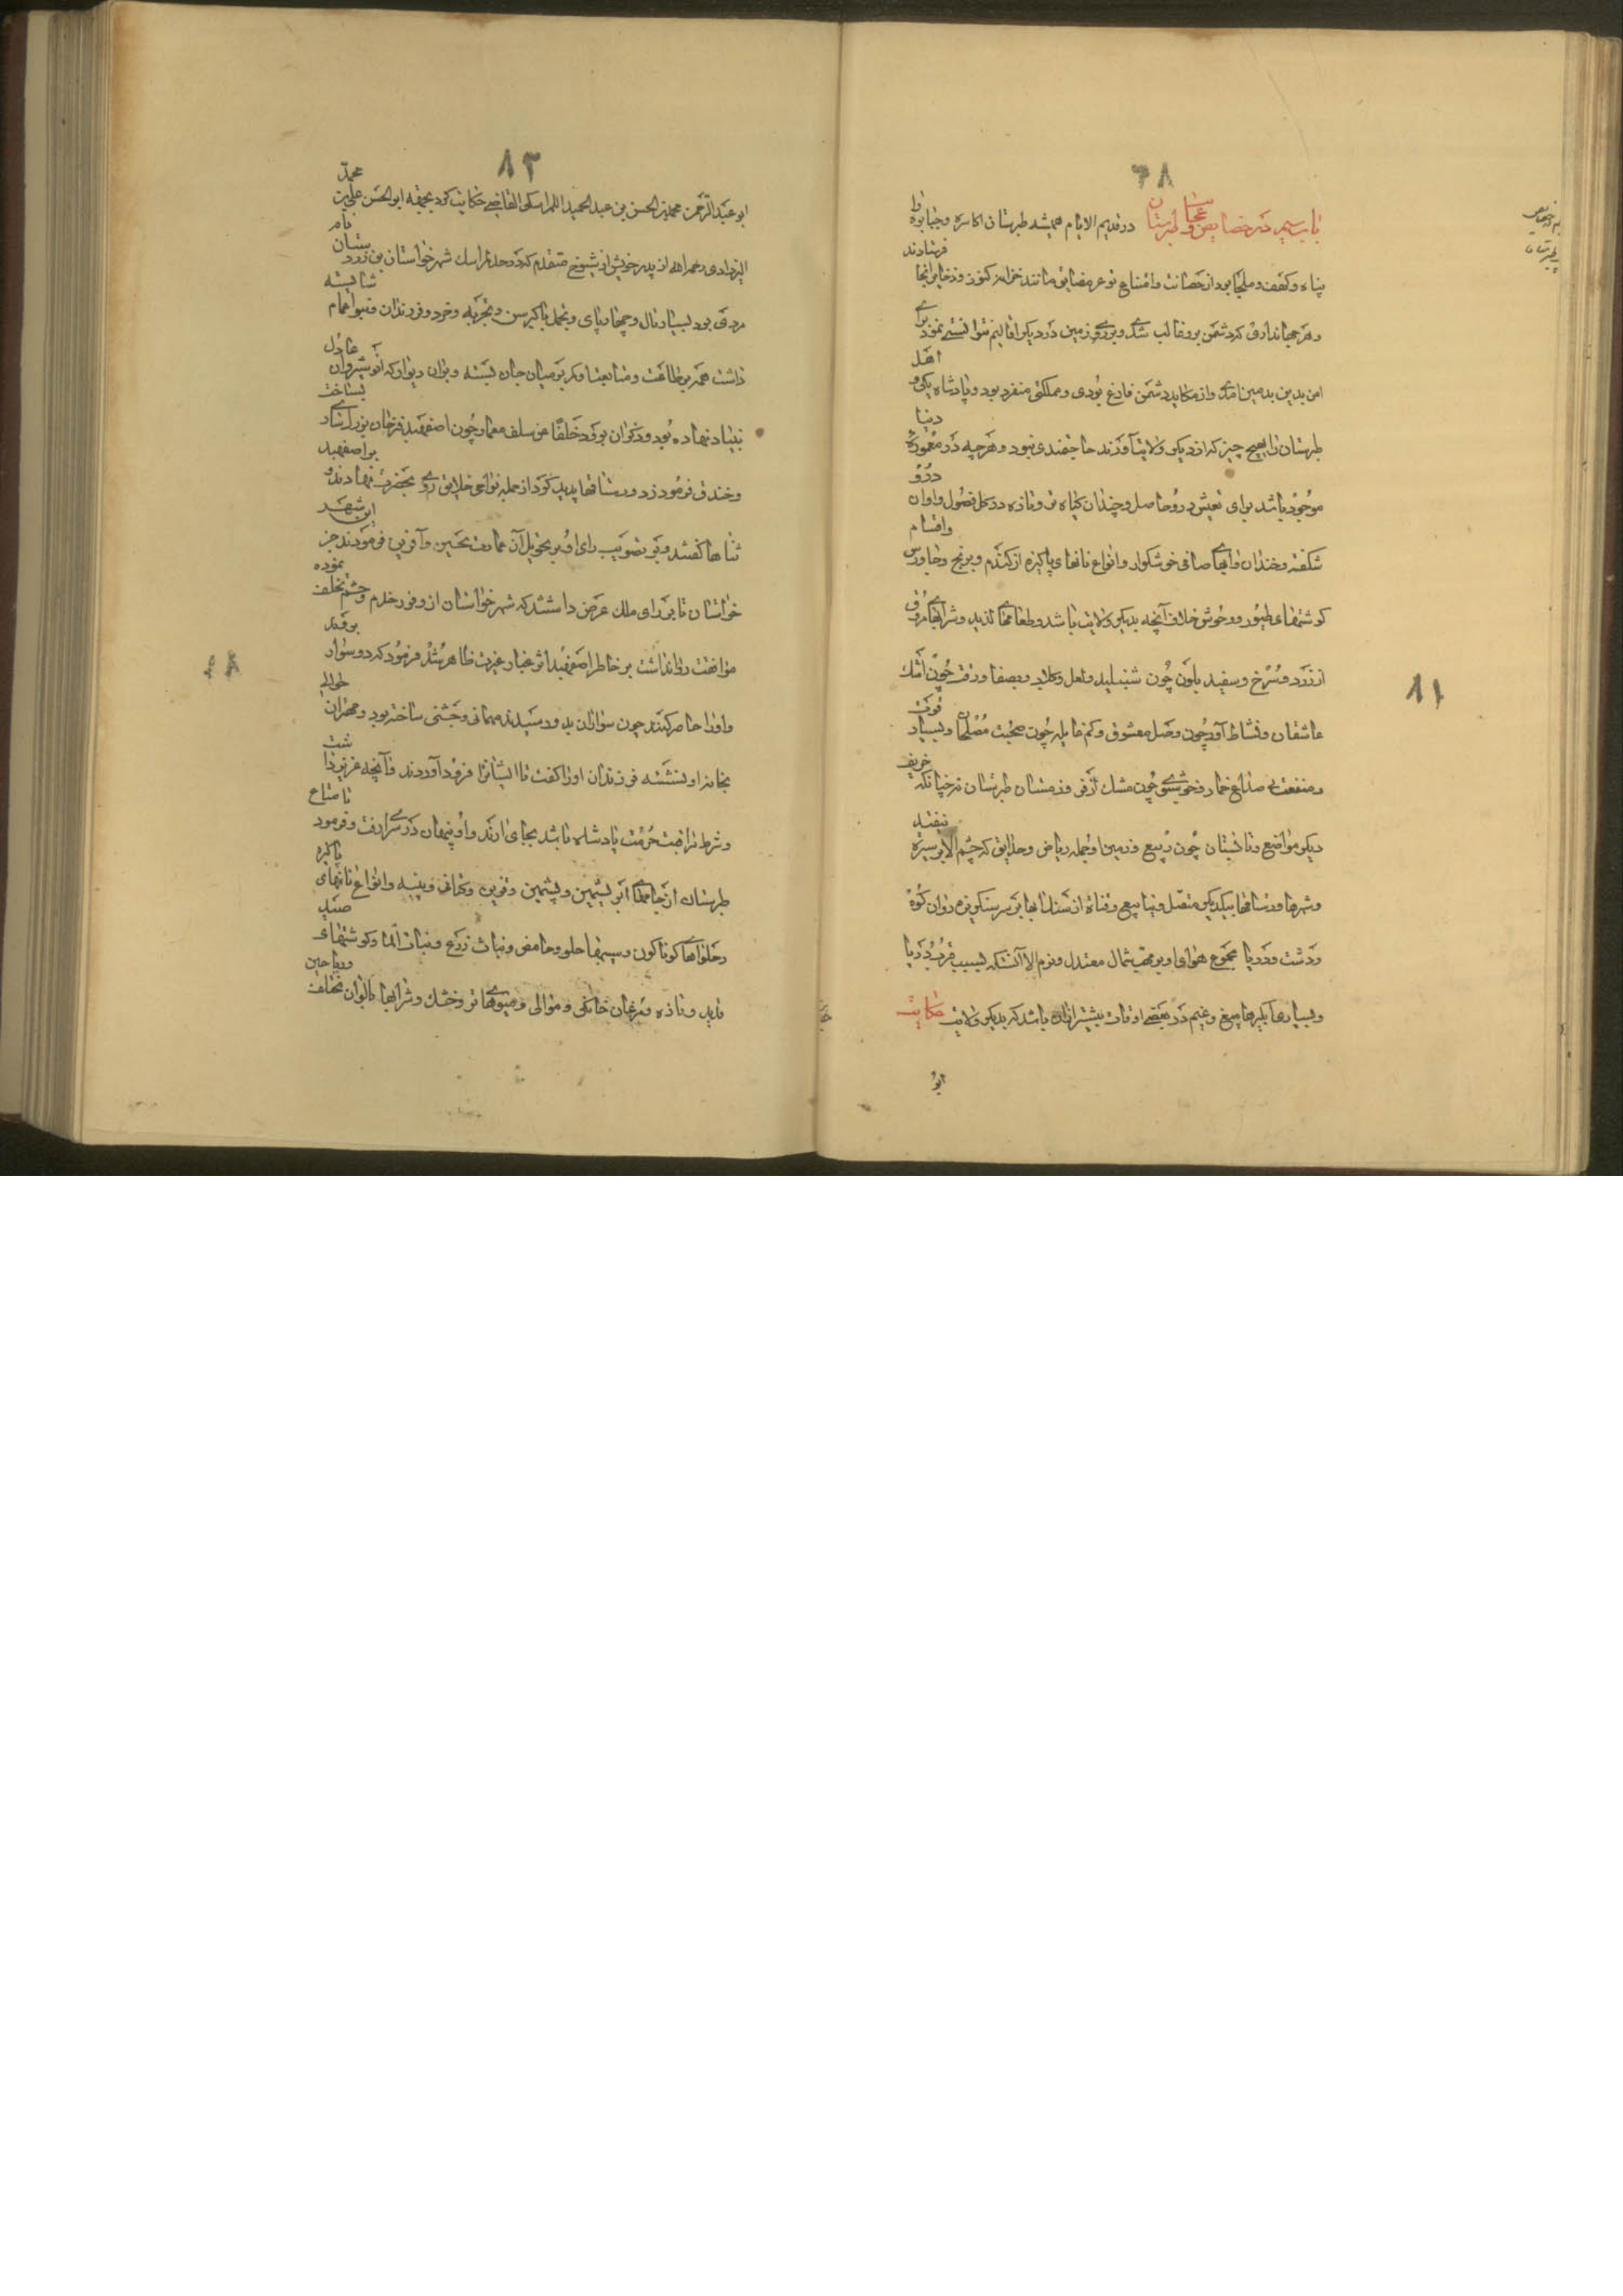 باب سیم در خصایص و عجایب طبرستان در قدیم الایام همیشه طبرستان اکاسره و جبابره را
پناه و کهف و ملجا بود از حصانت و امتناع توعر مضایق مانند خزانه کنوز و ذخایر آنجا فرستادند
و هر جهانداری که دشمن برو غالب شدی و بروی زمین در دیکر اقالیم نتوانستی نمود برای
امن بدین زمین آمدی و از مکاید دشمن فارغ بودی و مملکتی منفرد بود و پادشاه یکی و اهل
طبرستان را بهیچ چیز که از دیکر ولایت آورند حاجتمندی نبود و هرچه در معموره دنیا
موجود باشد برای تعیش درو حاصل و چندان کیاه تر و تازه در کل فصول و اوان درو
شکفته و خندان و آبهای صافی خوشکوار و انواع نانهای پاکیزه از کندم و برنج و جاورس و اقسام
کوشتهای طیور و وحوش خلاف آنچه بدیکر ولایت باشد و طعامهای لذیذ و شرابهای مروق
از زرد و سرخ و سفید بلون چون شنبلید و لعل و کلاب و بصفا و رقت چون اشک
عاشقان و نشاط آور چون وصل معشوق و کم غایله چون صحبت مصلحان و بسیار قوت
و منفعت بی صداع خمار و خوشبوی چون مشک اذفر و زمستان طبرستان چنانکه خریف
دیکر مواضع و تابستان چون ربیع و زمین او جمله ریاض و حدایق که چشم الا بر سبزه نیفتد
و شهرها و رستاقها بیکدیکر متصل و ینابیع و قناة از سنک آبها بر سر سنکریزه روان کوه
و دشت و دریا مجموع هوای او بر مهب شمال معتدل و نرم الا آنست که بسبب قرب دریا
و بسیاری آبکیرها میغ و غیم در بعضی اوقات بیشتر از آن باشد که بدیکر ولایت حکایت
ابو
۸۱
۸۲
ابو عبدالرحمن محمد بن الحسن بن عبدالحمید اللمراسکی القاضی حکایت کرد بحق ابوالحسن علی بن محمد
الیزدادی رحمه الله از پدر خویش از شیوخ متقدم که در حد لمراسک شهر خواستان بن زردستان نام
مردی بود بسیار مال و چهارپای و تجمل با کبر سن و تجربه و خرد و فرزندان و بنو اعمام شایسته
داشت همه بر طاعت و متابعت او کمر بر میان جان بسته و بران دیوار که انوشیروان عادل
بنیاد نهاده بود و ذکر آن برفت خلفا عن سلف معمار چون اصفهبد فرخان بزرک ساری بساخت
و خندق فرمود زد و رستاقها پدید کرد از جمله نواحی خلایق روی بحضرت نهادند و بر اصفهبد
ثناها کفتند و بر تصویب رای او بتحویل آن عمارت تحسین و آفرین فرمودند جز این شهر
خواستان تا برای ملک عرض داشتند که شهر خواستان از وفور خدم و حشم تخلف نموده
موافقت روا نداشت بر خاطر اصفهبد اثر غبار غیرت ظاهر شد فرمود که دو سوار برفتند
و او را حاضر کنند چون سواران بدو رسیدند مهمانی و جشنی ساخته بود و مهتران حوالی
بخانه او نشسته فرزندان او را کفت تا ایشانرا فرود آوردند و آنچه
و شرط مراقبت حرمت پادشاه باشد بجای آرند و او پنهان در سرای رفت و فرمود تا متاع
طبرستان از جامهای ابریشمین و پشمین و کتان و پنبه و انواع نانهای پاکیزه
و حلواهای کوناکون حلو و حامض و نبات زرع و نبات الما و کوشتهای صید
قدید و تازه و مرغان خانکی و میوهای تر و خشک و شرابها بالوان مختلف و ریاحین